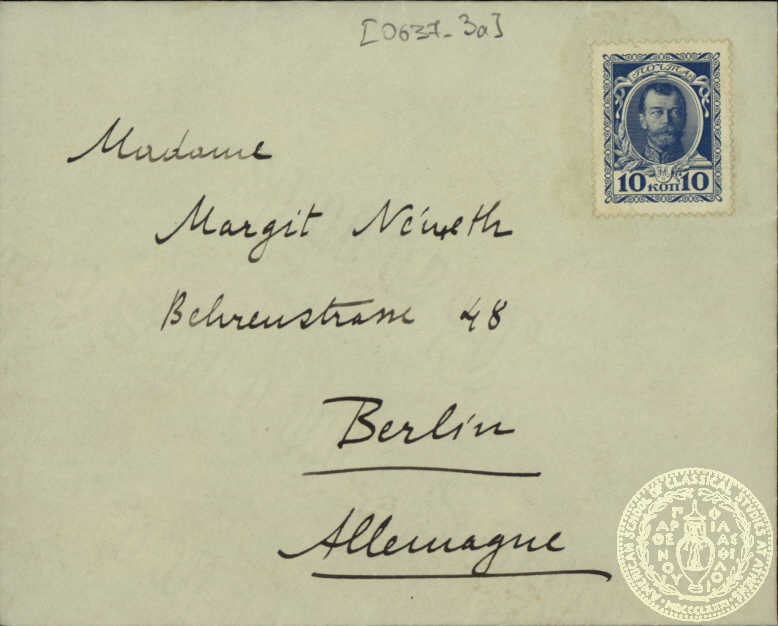 [0637-3a]
ПОЧТА
10 КОП 10
Madame
Margit Németh
Behrenstrasse 48
Berlin
Allemagne
AMERICAN SCHOOL OF CLASSICAL STUDIES AT ATHENS
ΠΑΡΘΕΝΟΥ ΦΙΛΑΣ ΦΙΛΟΙ
MDCCCLXXXI